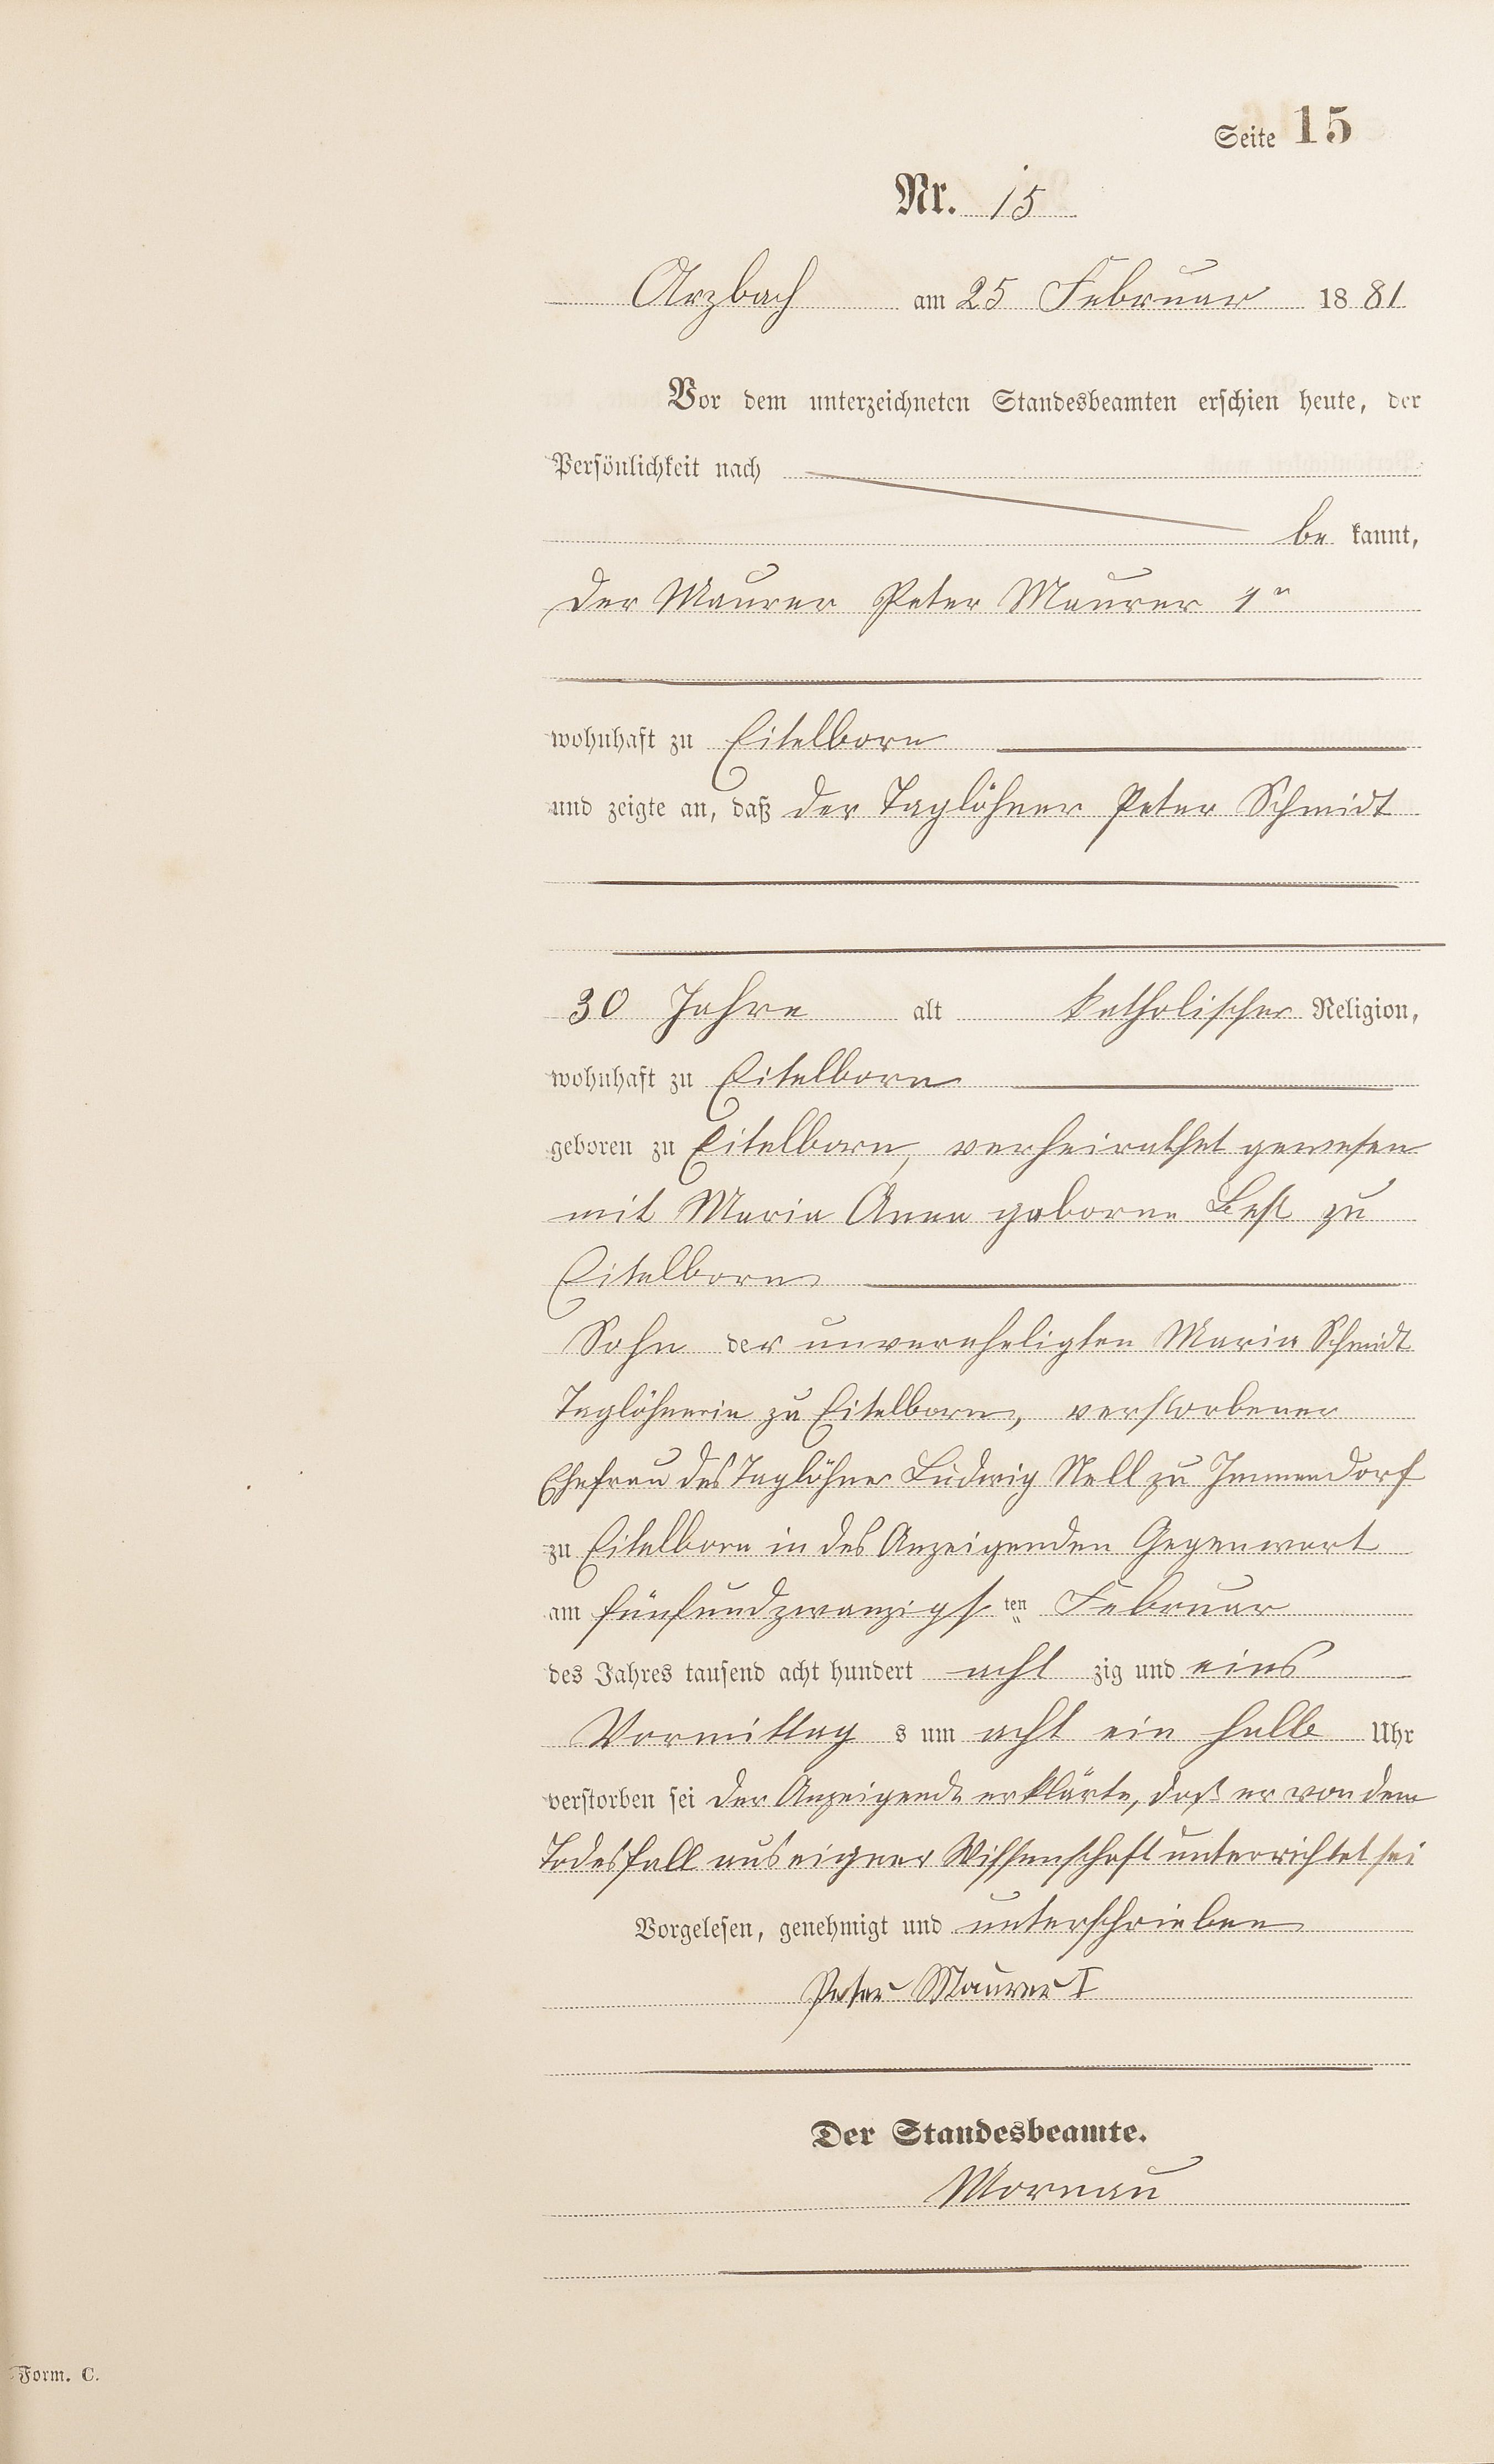 Seite 15
Nr. 15
Arzbach am 25 Februar 1881
Vor dem unterzeichneten Standesbeamten erschien heute, der
Persönlichkeit nach
be kannt,
der Maurer Peter Maurer 1r
wohnhaft zu Eitelborn
und zeigte an, daß der Taglöhner Peter Schmidt
30 Jahre alt katholischer Religion,
wohnhaft zu Eitelborn
geboren zu Eitelborn, verheirathet gewesen
mit Maria Anna geborne Best zu
Eitelborn
Sohn der unvereheligten Maria Schmidt
Taglöhnerin zu Eitelborn, verstorbener
Ehefrau des Taglöhner Ludwig Nell zu Immendorf
zu Eitelborn in des Anzeigenden Gegenwart
am fünfundzwanzigsten Februar
des Jahres tausend acht hundert acht zig und eins
Vormittag s um acht ein halb Uhr
verstorben sei der Anzeigende erklärte, daß er von dem
Todesfall aus eigner Wissenschaft unterrichtet sei
Vorgelesen, genehmigt und unterschrieben
Peter Maurer I
Der Standesbeamte.
Mornau
Form. C.